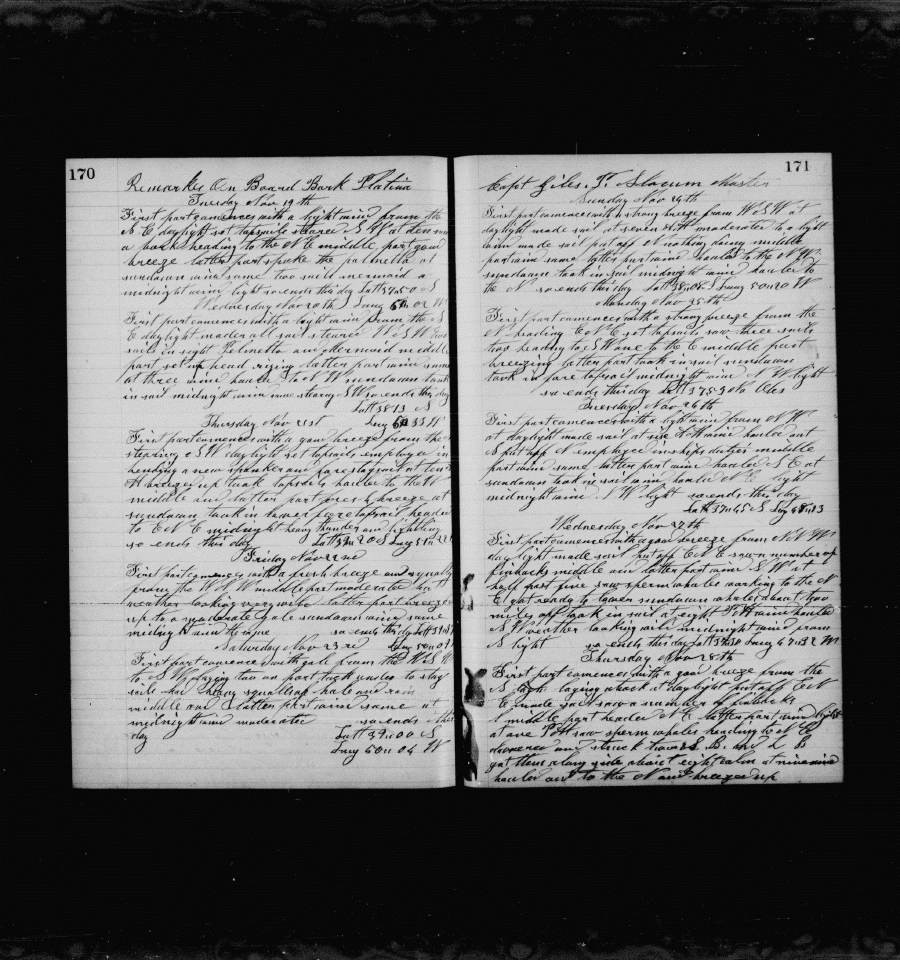 170
Remarks On Board Bark Platina
Tuesday Nov 19th
First part comences with a light wind from the
N E daylight set topsails steared S W at ten saw
a bark heading to the N E middle part good
breeze latter part spoke the palmetto at
sundown wind same two sail mermaid a
midnight wind light so ends this day Latt 37,,50 S
Wednesday Nov 20th Long 02 W
First part comences with a light wind from the N
E daylight made all sail steared W S W two
sails in sight Palmetto and mermaid middle
part set up head rizing latter part wind same
at three wind hauled to N W sundown took
in sail midnight wind same stearing S W so ends this day
Latt 38 13 S
Thursday Nov 21st Long 33 W
First part comences with a good breeze from the
stearing S W daylight set topsails employed in
bending a new spanker and forestaysail at ten
A breezed up took topsails hauled to the W
middle and latter part fresh breeze at
sundown took in lower foretopsail headed
to E N E midnight heavy thunder and lightling
so ends this day Latt 39,,20 S Long 51,, W
Friday Nov 22nd
First part comences with a fresh breeze and squally
from the W S W middle part moderated but
weather looking very wild latter part breezed
up to a moderate gale sundown wind same
midnight wind the same so ends this day Latt 39
Saturday Nov 23rd Long 50,,
First part comences with gale from the W S W
to S W laying two on port tack under to stay
sails had heavy squalls of hale and rain
middle and latter part wind same at
midnight wind moderated so ends this
day Latt 39,,00 S
Long 50,,04 W
171
Capt Giles. P. Slocum Master
Sunday Nov 24th
First part comences with strong breeze from W S W at
daylight made sail at seven A M moderated to a light
wind made sail put off N nothing doing middle
part wind same latter part wind hauled to the N W
sundown took in sail midnight wind hauled to
the N so ends this day Latt 38,,04 S Long 50,,20 W
Monday Nov 25th
First part comences with a strong breeze from the
heading E N E set topsails saw three sails
two heading to S W one to the E middle part
breezing latter part took in sail sundown
took in fore topsail midnight wind N W light
so ends this day Latt 37,,53 No Obs
Tuesday Nov 26th
First part comences with a light wind from N W
at daylight made sail at six A M wind hauled out
S put off N employed in ships duties middle
part wind same latter part wind hauled S E at
sundown took in sail wind hauled N E light
midnight wind N W light so ends this day
Latt 37,,45 S Long 48,,13
Wednesday Nov 27th
First part comences with a good breeze from N N W
daylight made sail put off E N E saw a number of
finbacks middle and latter part wind S W at
half past five saw sperm whales working to the N
E got ready to lower sundown whales about two
miles off took in sail at eight P M wind hauled
S W weather looking wild midnight wind from
S light so ends this day Latt 37,,31 Long 47,,32 W
Thursday Nov 28th
First part comences with a good breeze from the
S laying aback at daylight put off E N
E made sail saw a number of finbacks
middle part headed N E latter part wind light
at one P M saw sperm whales heading to N E
lowered and struck two S. B. and L B
got them along side about eight calm at nine wind
hauled out to the N and breezed up